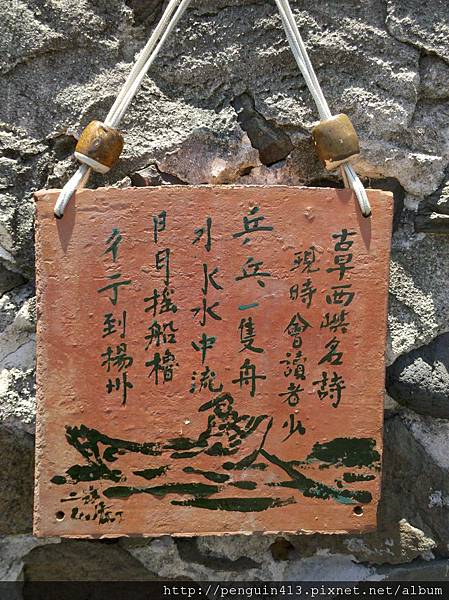 古早西嶼名詩
現時會讀者少
乒乓一隻舟
水水中流
搖船櫓
彳亍到揚州
http://penguin413.pixnet.net/album